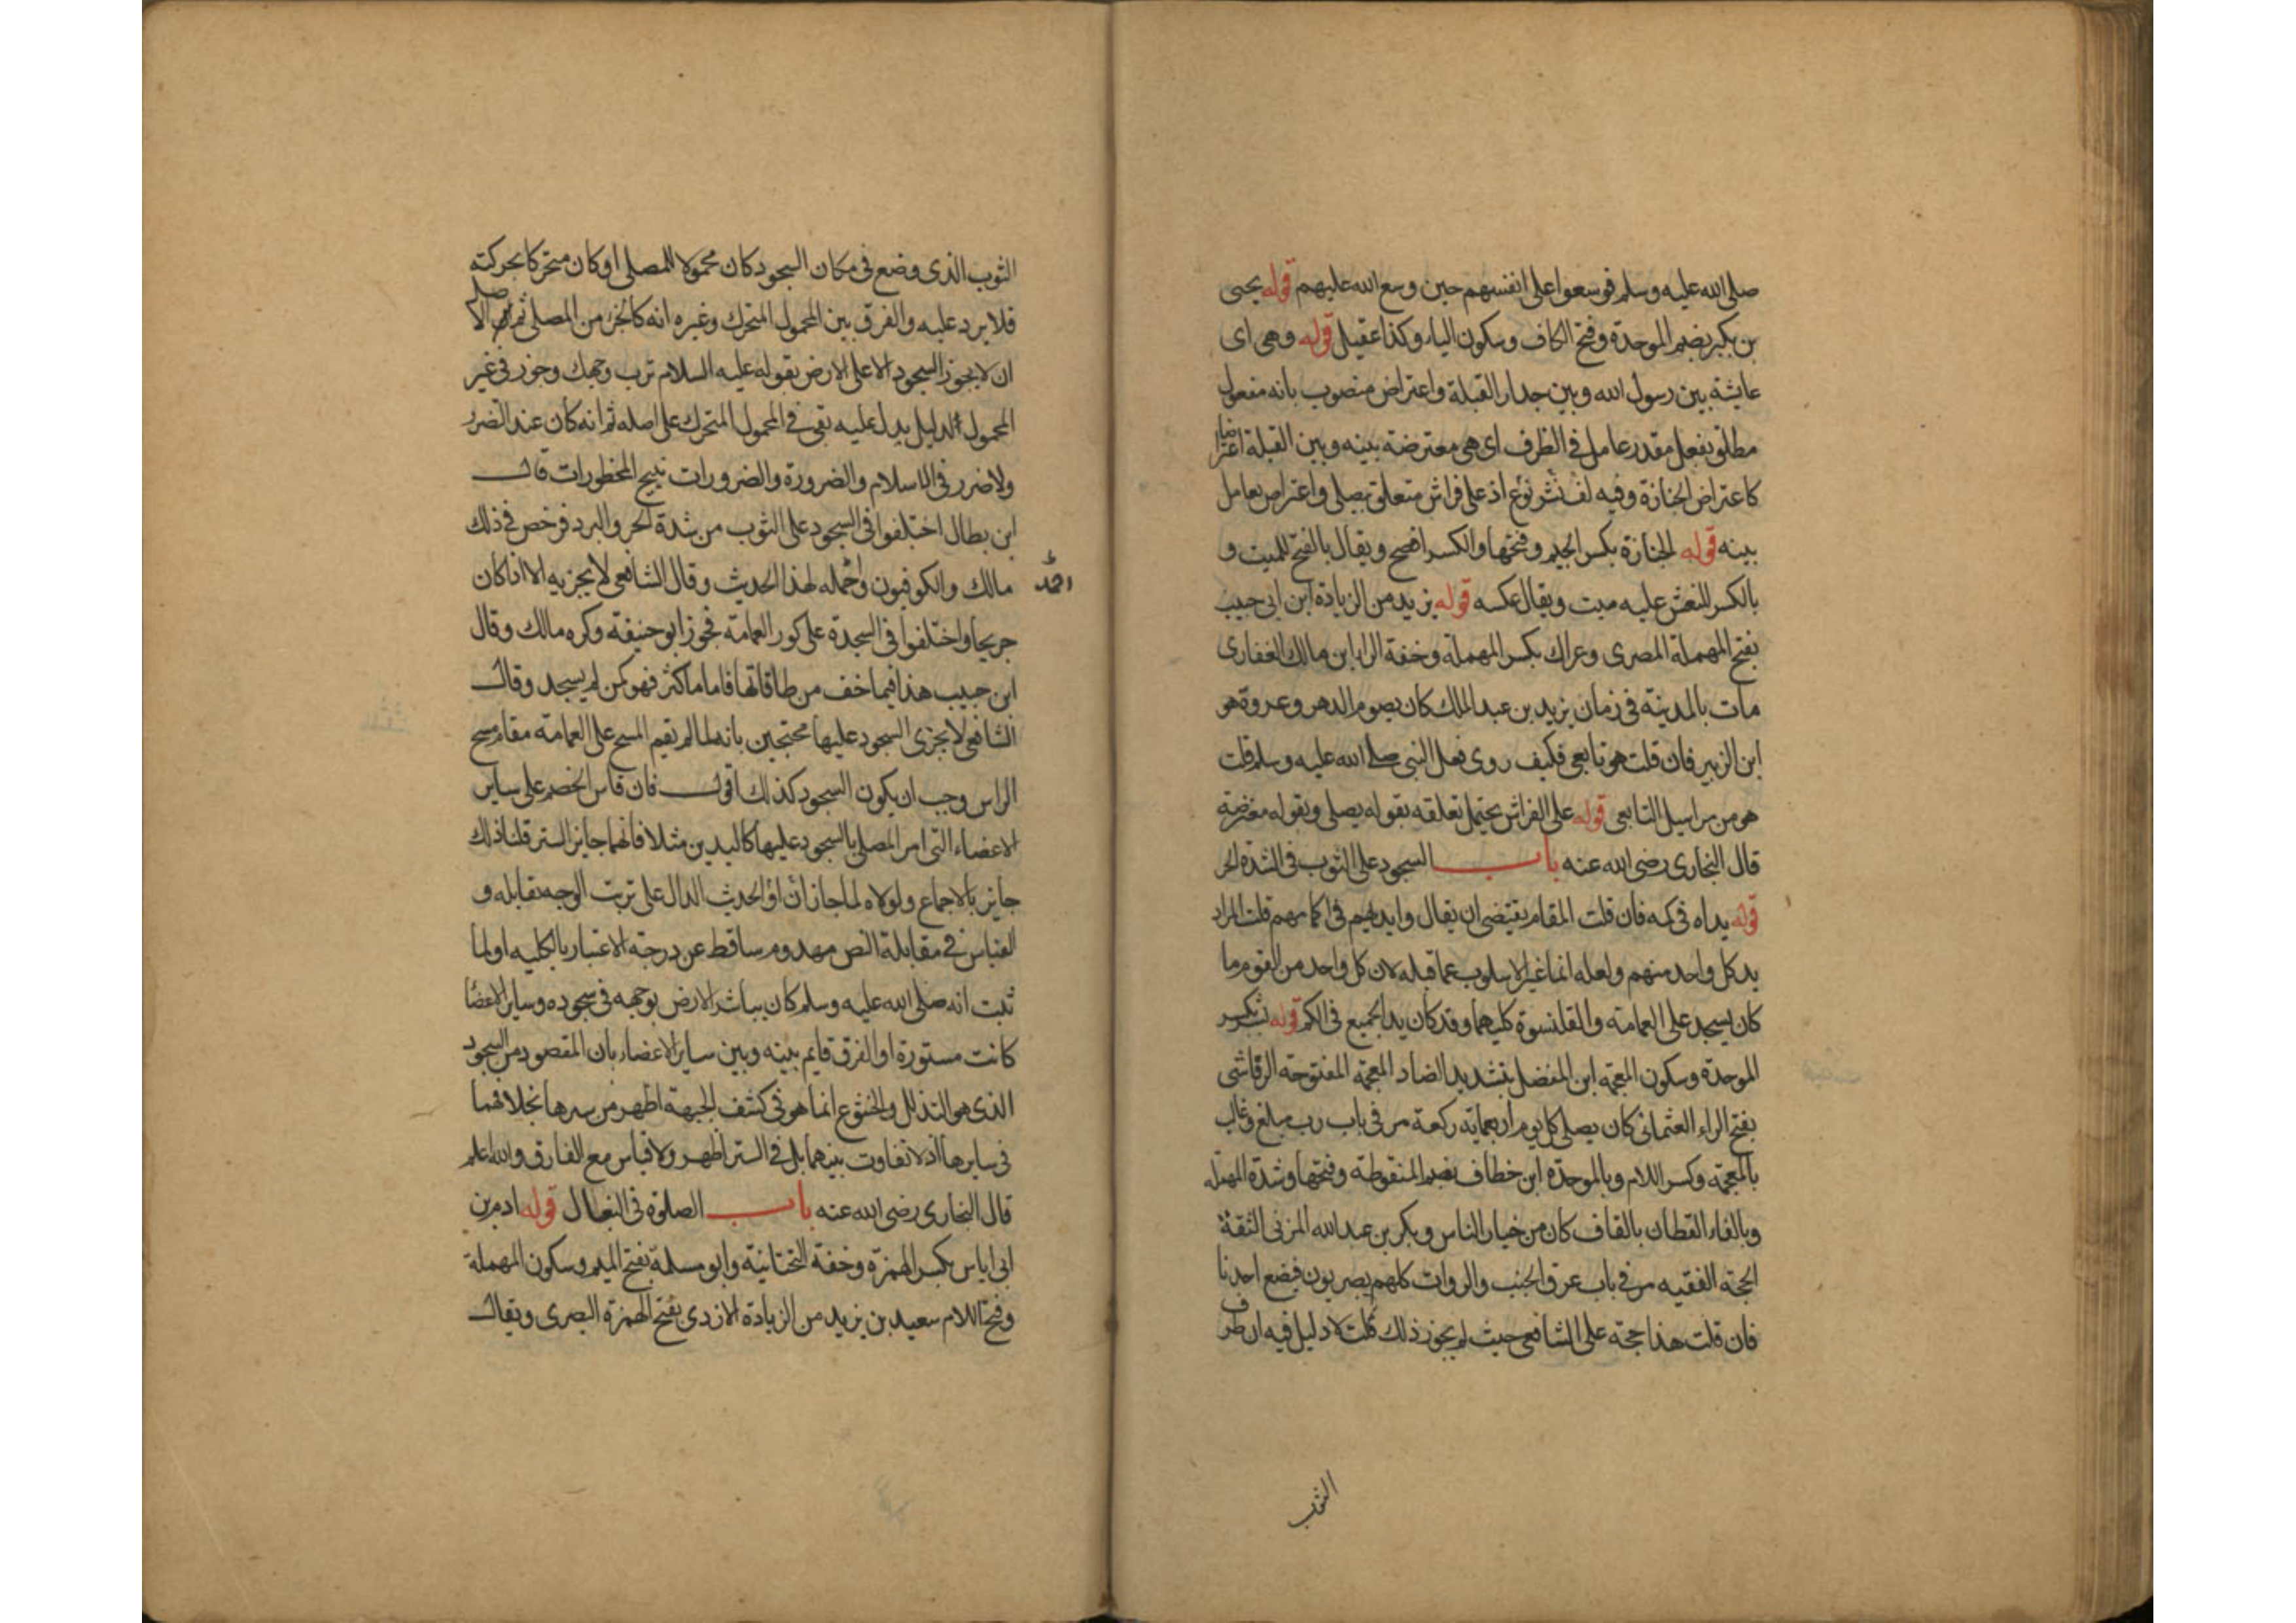 صلى الله عليه وسلم فوسعوا على انفسهم حين وسع الله عليهم قوله يحيى
بن بكير بضم الموحدة وفتح الكاف وسكون الياء وكذا عقيل قوله وهى اى
عايشة بين رسول الله وبين جدار القبلة واعتراض منصوب بانه مفعول
مطلق بفعل مقدر عامل فى الظرف اى هى معترضة بينه وبين القبلة اعتراضا
كاعتراض الجنازة وفيه لف نشر نوع اذ على فراش متعلق بيصلى واعتراض بعامل
بينه قوله الجنازة بكسر الجيم وفتحها والكسر افصح ويقال بالفتح للميت و
بالكسر للنعش عليه ميت ويقال عكسه قوله يزيد من الزيادة ابن ابى حبيب
بفتح المهملة المصرى وعراك بكسر المهملة وخفة الراء ابن مالك الغفارى
مات بالمدينة فى زمان يزيد بن عبد الملك كان يصوم الدهر وعروة هو
ابن الزبير فان قلت هو تابعى فكيف روى فعل النبى صلى الله عليه وسلم قلت
هو من مراسيل التابعى قوله على الفراش يحتمل تعلقه بقوله يصلى وبقوله معترضة
قال البخارى رضى الله عنه باب السجود على الثوب فى الشدة الحر
قوله يداه فى كمه فان قلت المقام يقتضى ان يقال وايديهم فى اكمامهم قلت المراد
يد كل واحد منهم ولعله انما غير الاسلوب عما قبله لان كل واحد من القوم ما
كان يسجد على العمامة والقلنسوة كليهما وقد كان يد الجميع فى الكم قوله بشر بكسر
الموحدة وسكون المعجمة ابن المفضل بتشديد الضاد المعجمة المفتوحة الرقاشى
بفتح الراء العثمانى كان يصلى كل يوم اربعماية ركعة مر فى باب رب مبلغ وغالب
بالمعجمة وكسر اللام وبالموحدة ابن خطاف بضم المنقوطة وفتحها وشدة المهملة
وبالفاء القطان بالقاف كان من خيار الناس وبكر بن عبد الله المزنى الثقة
الحجة الفقيه مر فى باب عرق الجنب والروات كلهم بصريون فيضع احدنا
فان قلت هذا حجة على الشافعى حيث لم يجوز ذلك قلت لا دليل فيه ان طرف
الثوب
الثوب الذى وضع فى مكان السجود كان محمولا للمصلى او كان متحركا بحركته
فلا يرد عليه والفرق بين المحمول المتحرك وغيره انه كالجزء من المصلى ثم الاصل
ان لا يجوز السجود الا على الارض بقوله عليه السلام ترب وجهك وجوز فى غير
المحمول لدليل يدل عليه بقى فى المحمول المتحرك على اصله ثم انه كان عند الضرر
ولا ضرر فى الاسلام والضرورة والضرورات تبيح المحظورات قال
ابن بطال اختلفوا فى السجود على الثوب من شدة الحر والبرد فرخص فى ذلك
مالك والكوفيون واحمد لهذا الحديث وقال الشافعى لا يجزيه الا اذا كان
احمد
جريحا واختلفوا فى السجدة على كور العمامة فجوز ابو حنيفة وكره مالك وقال
ابن حبيب هذا فيما خف من طاقاتها فاما ما كثر فهو كمن لم يسجد وقال
الشافعى لا يجزى السجود عليها محتجين بانه لما لم يقم المسح على العمامة مقام مسح
الراس وجب ان يكون السجود كذلك اقول فان قاس الخصم على ساير
الاعضاء التى امر المصلى بالسجود عليها كاليدين مثلا فانهما جايز الستر قلنا ذلك
جايز بالاجماع ولولاه لما جاز ان او الحديث الدال على تربت الوجه بقابله و
القياس فى مقابلة النص مهدوم ساقط عن درجة الاعتبار بالكليه او لما
ثبت انه صلى الله عليه وسلم كان يباشر الارض بوجهه فى سجوده وساير الاعضا
كانت مستورة او الفرق قايم بينه وبين ساير الاعضاء بان المقصود من السجود
الذى هو التذلل والخشوع انما هو فى كشف الجبهة اظهر من سرها بخلافهما
فى سايرها اذ لا تفاوت بينهما بل فى الستر اظهر ولا قياس مع الفارق والله اعلم
قال البخارى رضى الله عنه باب الصلوة فى النعال قوله ادم بن
ابى اياس بكسر الهمزة وخفة التحتانية وابو مسلمة بفتح الميم وسكون المهملة
وفتح اللام سعيد بن يزيد من الزيادة الازدى بفتح الهمزة البصرى ويقال